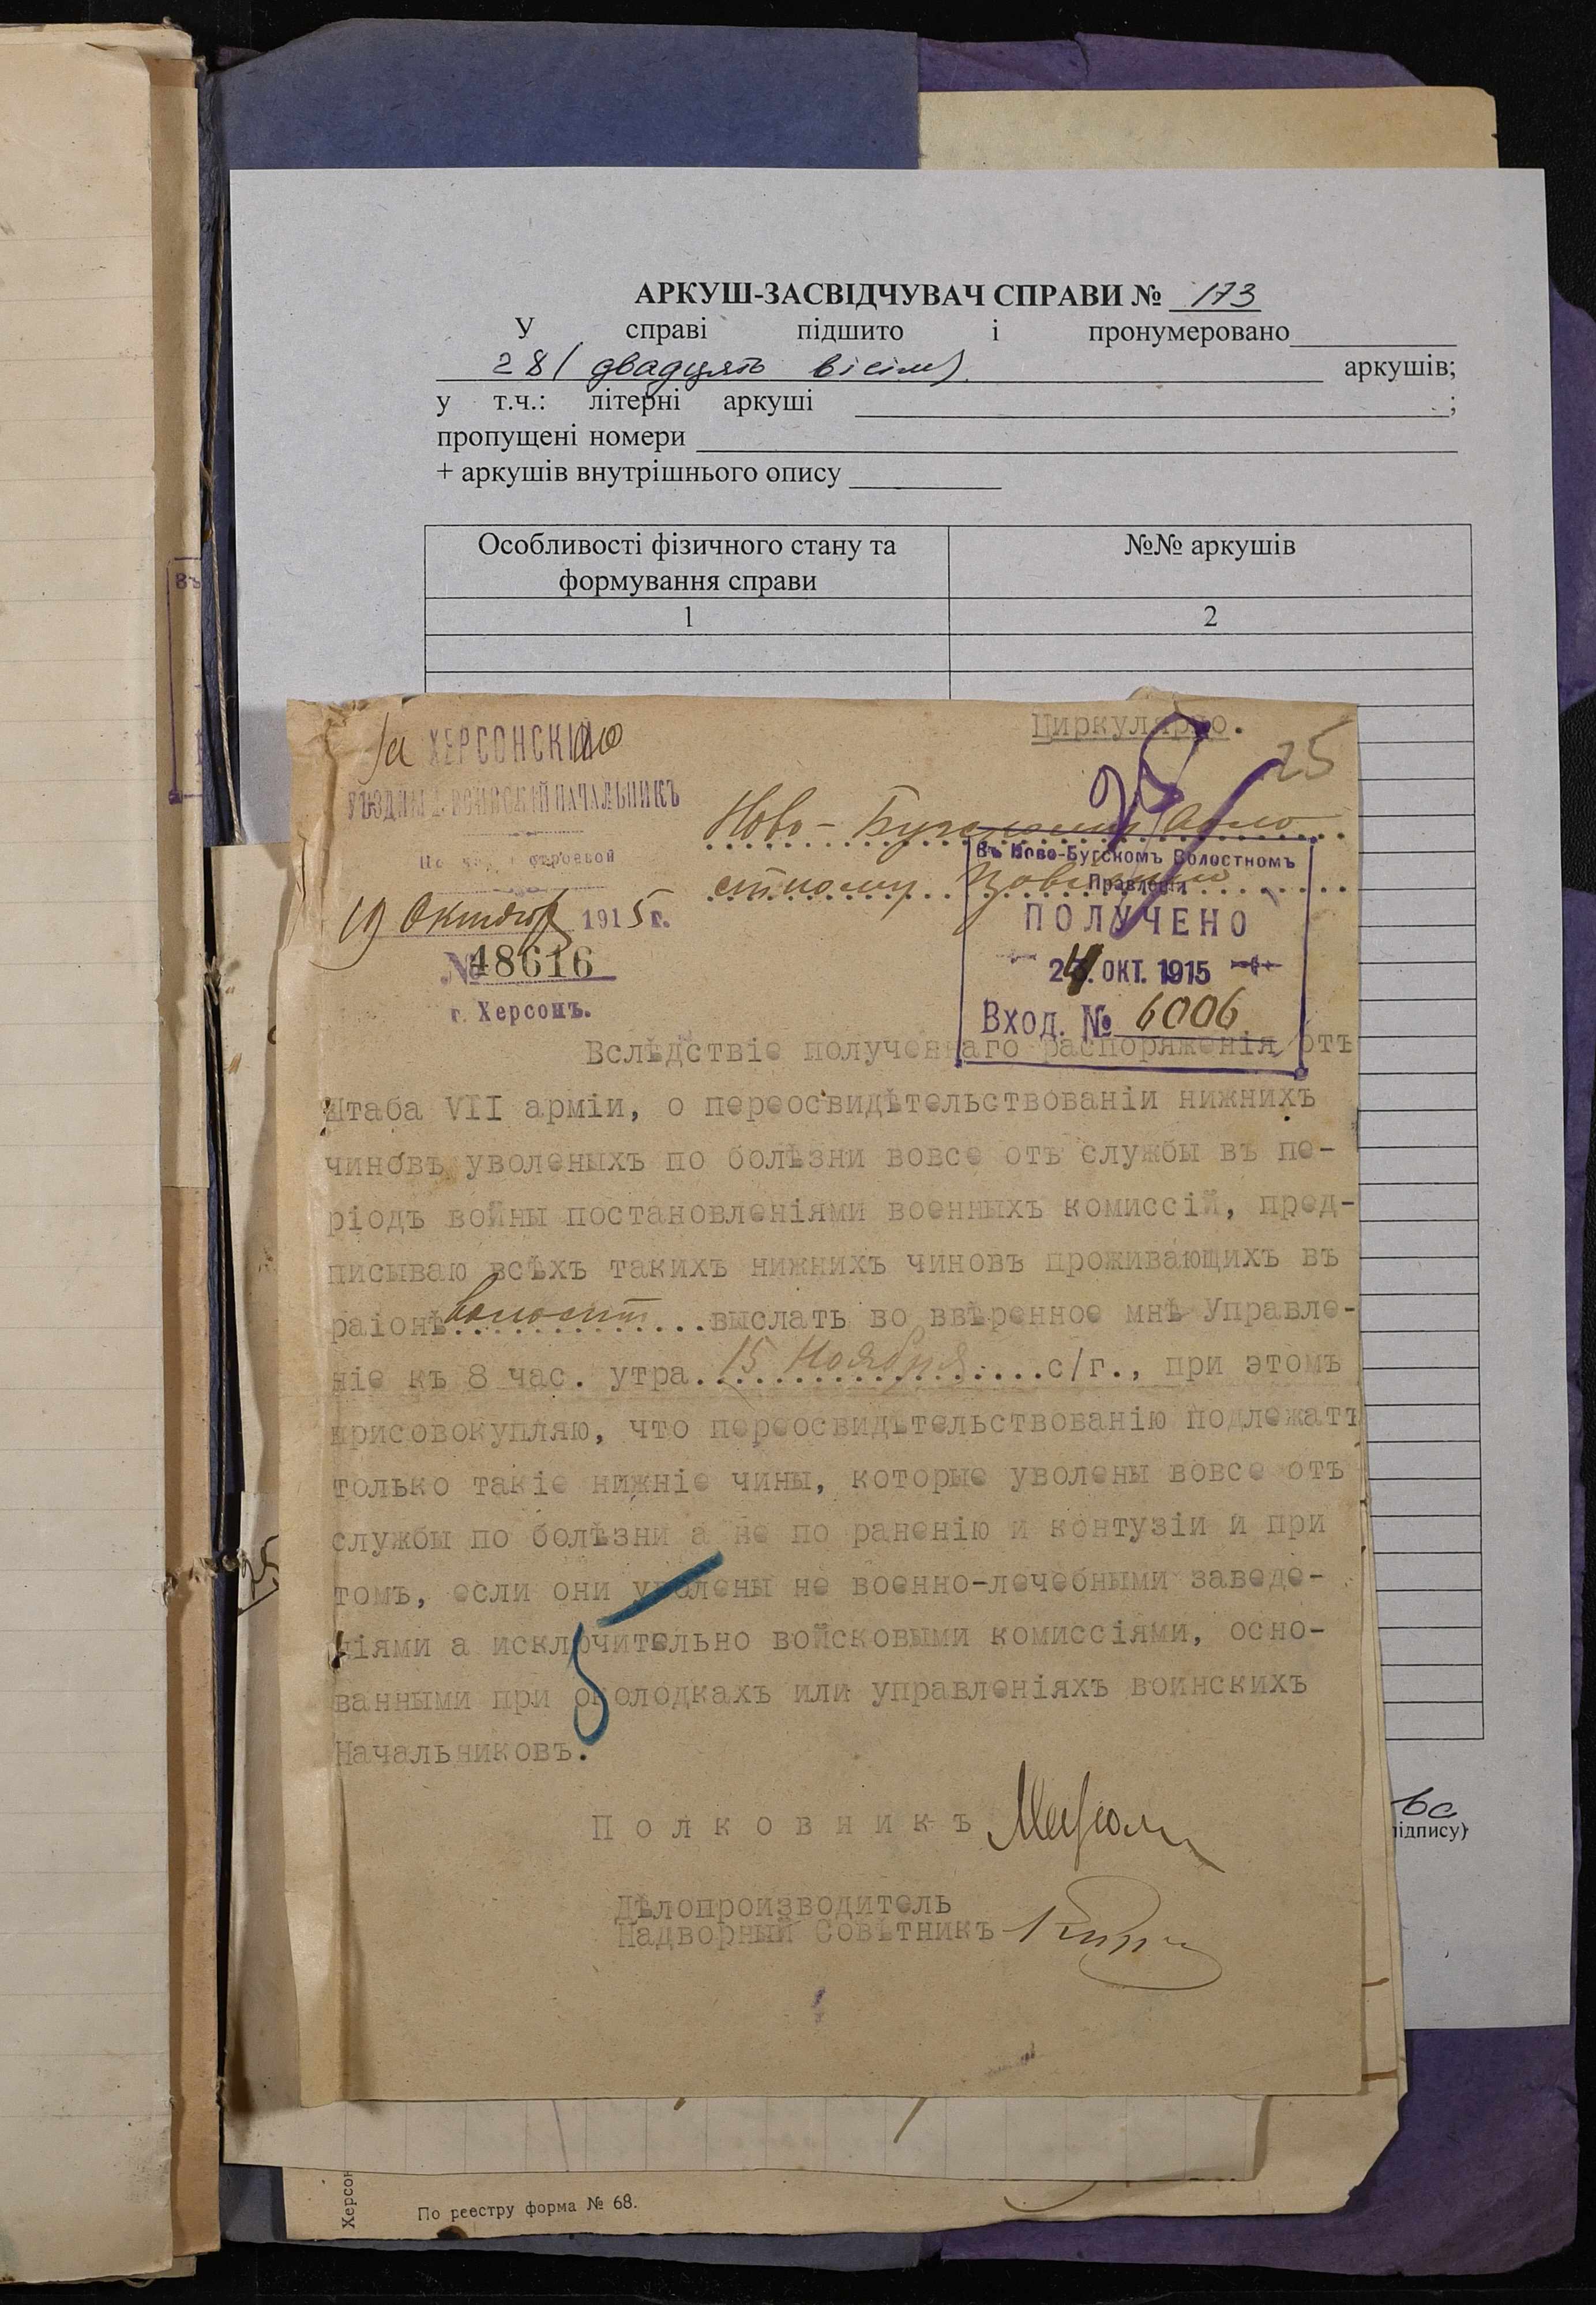 АРКУШ-ЗАСВІДЧУВАЧ СПРАВИ № 173
У справі підшито і пронумеровано
28 (двадцять вісім) аркушів;
у т.ч.: літерні аркуші ;
пропущені номери
+ аркушів внутрішнього опису
Особливості фізичного стану та формування справи
№№ аркушів
1
2
Циркулярно.
25
За ХЕРСОНСКІЙ
УѢЗДНЫЙ ВОИНСКІЙ НАЧАЛЬНИКЪ
По части строевой
19 Октября 1915 г.
№ 48616
г. Херсонъ.
Ново-Бугскому Воло
стному Правленію
Въ Ново-Бугскомъ Волостномъ
Правленіи
ПОЛУЧЕНО
24. ОКТ. 1915
Вход. № 6006
Вслѣдствіе полученнаго распоряженія отъ
Штаба VII арміи, о переосвидѣтельствованіи нижнихъ
чиновъ уволеныхъ по болѣзни вовсе отъ службы въ пе-
ріодъ войны постановленіями военныхъ комиссій, пред-
писываю всѣхъ такихъ нижнихъ чиновъ проживающихъ въ
раіонѣ волости выслать во ввѣренное мнѣ Управле-
ніе къ 8 час. утра 15 Ноября с/г., при этомъ
присовокупляю, что переосвидѣтельствованію подлежатъ
только такіе нижніе чины, которые уволены вовсе отъ
службы по болѣзни а не по раненію и контузіи и при
томъ, если они уволены не военно-лечебными заведе-
ніями а исключительно войсковыми комиссіями, осно-
ванными при околодкахъ или управленіяхъ воинскихъ
Начальниковъ.
Полковникъ
Дѣлопроизводитель
Надворный Совѣтникъ
ідпису)
Херсон
По реестру форма № 68.